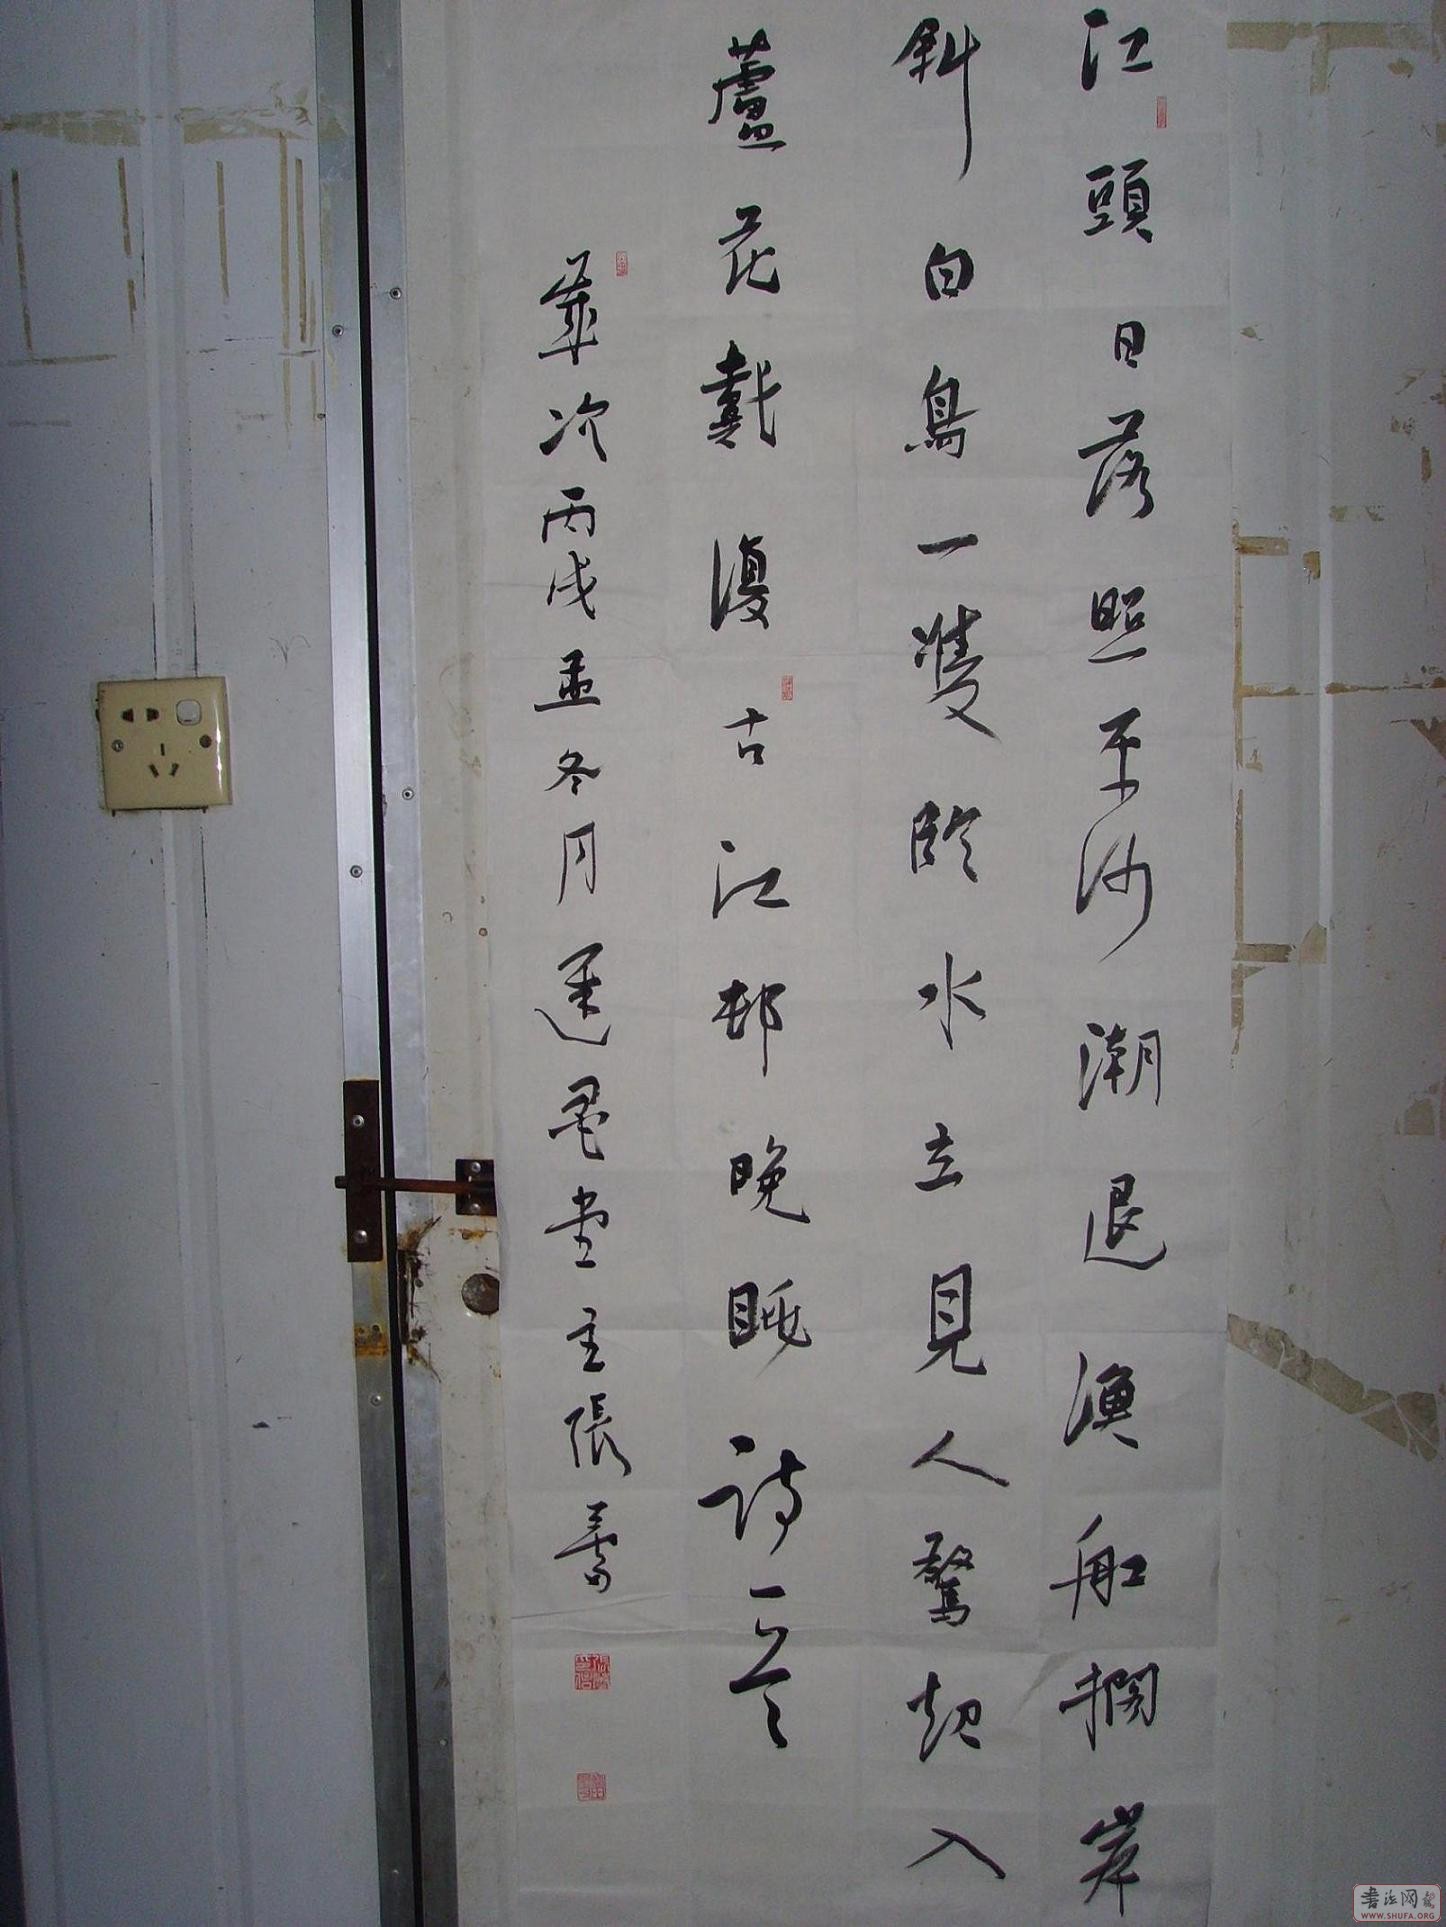 江頭日落照平沙潮退漁船擱岸
斜白鳥一雙臨水立見人驚起入
蘆花戴復古江邨晚眺詩一首
歲次丙戌孟冬月遲墨堂主張
书法网
WWW.SHUFA.ORG